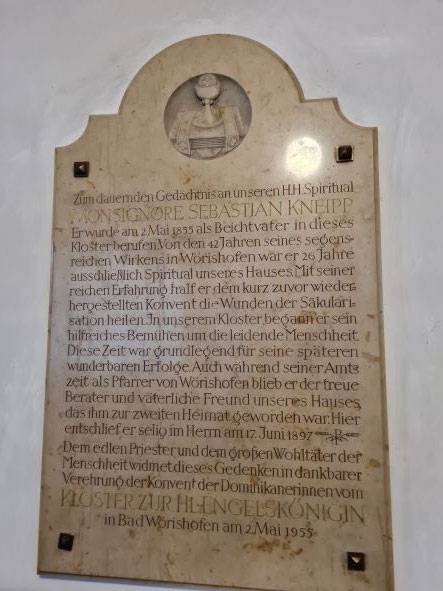 Zum dauernden Gedächtnis an unseren H.H. Spiritual
MONSIGNORE SEBASTIAN KNEIPP
Er wurde am 2. Mai 1855 als Beichtvater in dieses
Kloster berufen. Von den 42 Jahren seines segens-
reichen Wirkens in Wörishofen war er 26 Jahre
ausschließlich Spiritual unseres Hauses. Mit seiner
reichen Erfahrung half er dem kurz zuvor wieder-
hergestellten Konvent die Wunden der Säkulari-
sation heilen. In unserem Kloster begann er sein
hilfreiches Bemühen um die leidende Menschheit.
Diese Zeit war grundlegend für seine späteren
wunderbaren Erfolge. Auch während seiner Amts-
zeit als Pfarrer von Wörishofen blieb er der treue
Berater und väterliche Freund unseres Hauses,
das ihm zur zweiten Heimat geworden war. Hier
entschlief er selig im Herrn am 17. Juni 1897
Dem edlen Priester und dem großen Wohltäter der
Menschheit widmet dieses Gedenken in dankbarer
Verehrung der Konvent der Dominikanerinnen vom
KLOSTER ZUR HL. ENGELSKÖNIGIN
in Bad Wörishofen am 2. Mai 1955